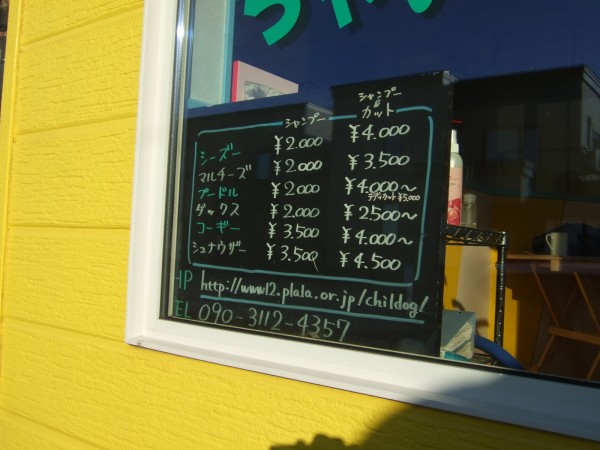 シャンプー シャンプー&カット
シーズー ¥2.000 ¥4.000
マルチーズ ¥2.000 ¥3.500
プードル ¥2.000 ¥4.000～
テディカット¥5,000
ダックス ¥2.000 ¥2500～
コーギー ¥3.500 ¥4.000～
シュナウザー ¥3.500 ¥4.500
HP http://www12.plala.or.jp/childog/
TEL 090-3112-4357